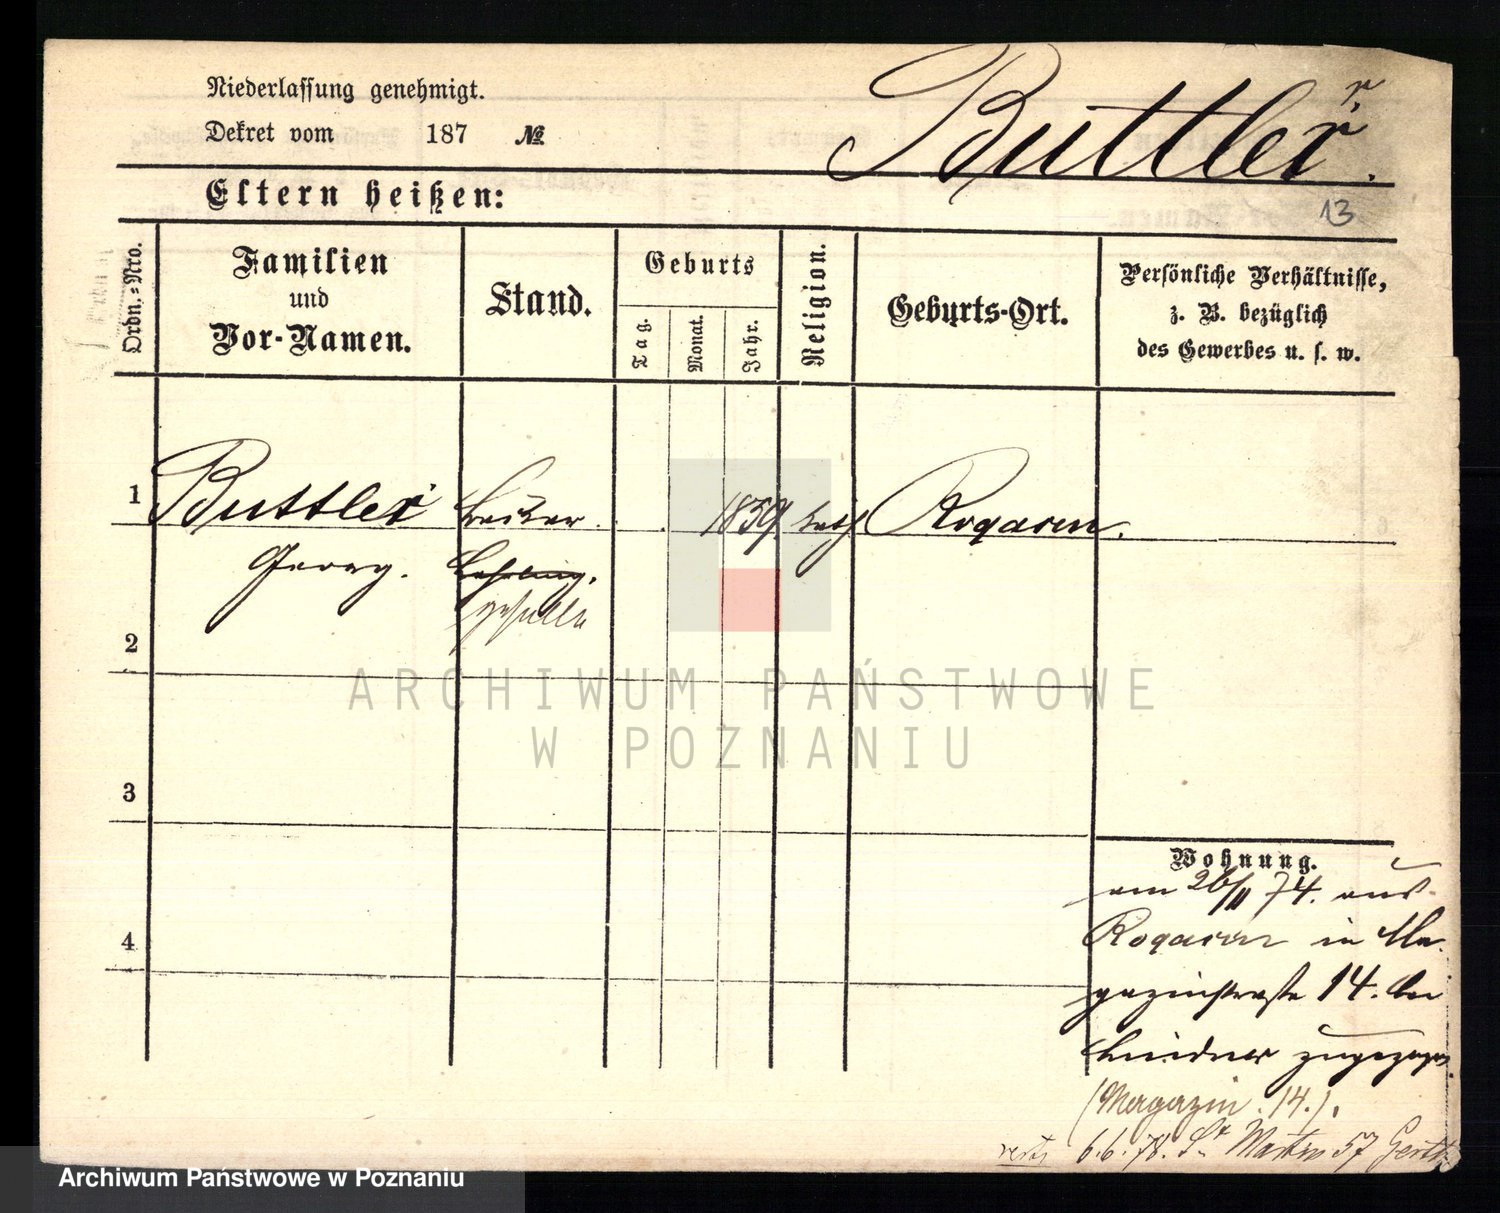 Niederlassung genehmigt.
Dekret vom 187 №
Buttler.
r.
Eltern heißen:
13
Ordn.-Nro.
Familien
und
Vor-Namen.
Stand.
Geburts
Tag.
Monat.
Jahr.
Religion.
Geburts-Ort.
Persönliche Verhältnisse,
z. B. bezüglich
des Gewerbes u. s. w.
1 Buttler 1859 kath. Rogasen.
Georg. Lehrling.
2
ARCHIWUM PAŃSTWOWE
W POZNANIU
3
Wohnung.
am 26/11 74. aus
4
Rogasen in Ma-
gazinstraße 14. bei
zugezogen.
(Magazin. 14.).
6.6.78. St. Martin 57
Archiwum Państwowe w Poznaniu